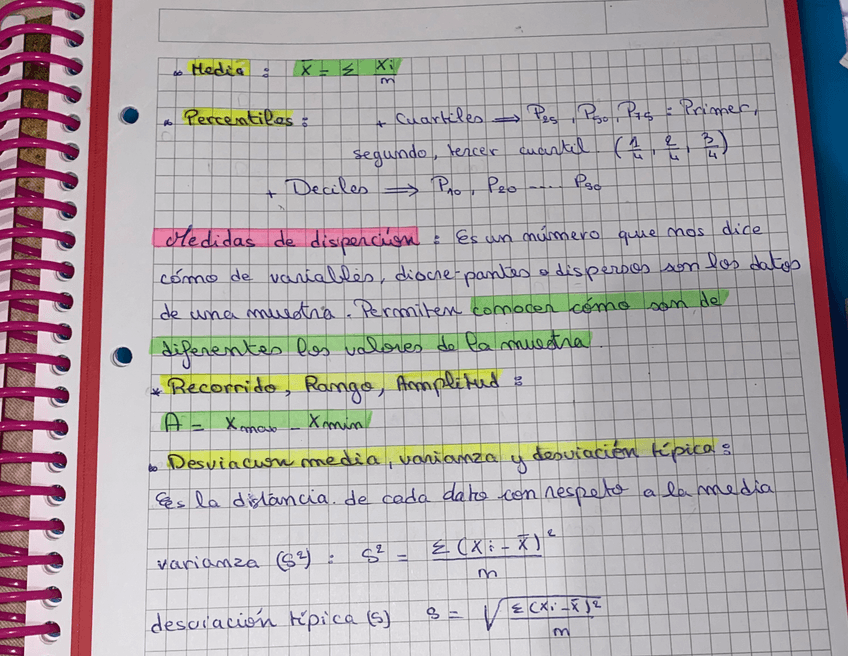 • Media : x̄ = Σ xi/n
• Percentiles : + Cuartiles ⟹ P25, P50, P75 = Primer,
segundo, tercer cuartil (1/4, 2/4, 3/4)
+ Deciles ⟹ P10, P20 .... P90
Medidas de disperción : Es un número que nos dice
cómo de variables, discre-pantes o dispersos son los datos
de una muestra. Permiten conocer cómo son de
diferentes los valores de la muestra.
* Recorrido, Rango, Amplitud :
A = Xmax - Xmin
• Desviacion media, varianza y desviación típica :
Es la distancia de cada dato con respeto a la media
varianza (S²) : S² = Σ (Xi - x̄)²/n
desviación típica (S) S = √Σ(Xi - x̄)²/n